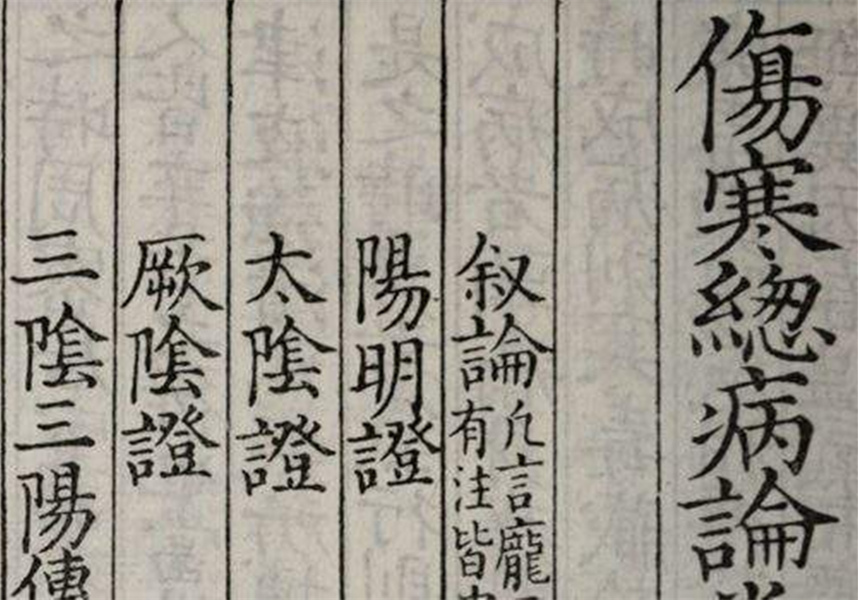 傷寒總病論
叙論
凡言龐
有注皆
陽明證
太陰證
厥陰證
三陰三陽傳